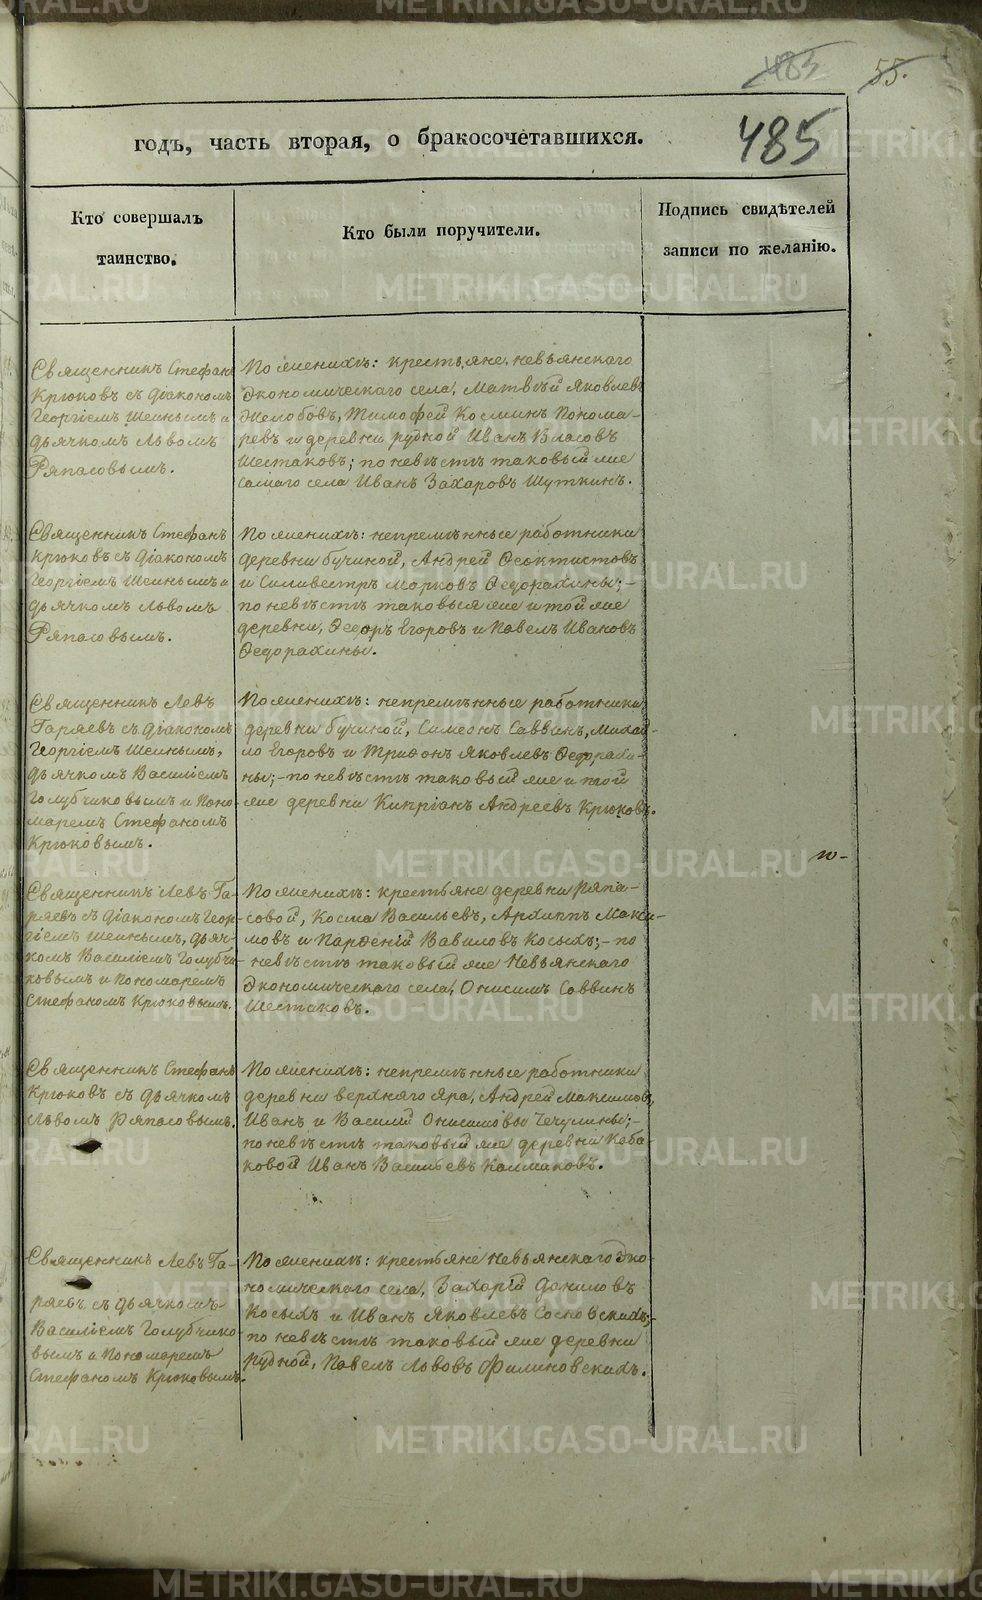 485 55.
годъ, часть вторая, о бракосочетавшихся. 485
Кто совершалъ
таинство.
Кто были поручители.
Подпись свидѣтелей
записи по желанію.
Священникъ Стефанъ
Крюковъ съ діакономъ
Георгіемъ Шеинымъ и
дьячкомъ Львомъ
Ряпасовымъ.
По женихѣ: крестьяне, невьянскаго
Экономическаго села, Матвѣй Яковлевъ
Желобовъ, Тимофей Косминъ Понома-
ревъ и деревни рудной Иванъ Власовъ
Шестаковъ; по невѣстѣ таковый же
самаго села Иванъ Захаровъ Шуткинъ.
Священникъ Стефанъ
Крюковъ съ діакономъ
Георгіемъ Шеинымъ и
дьячкомъ Львомъ
Ряпасовымъ.
По женихѣ: непремѣнные работники
деревни бучиной, Андрей Ѳеоктистовъ
и Силивестръ Марковъ Ѳедорахины;-
по невѣстѣ таковыя же и той же
деревни, Ѳедоръ Егоровъ и Павелъ Ивановъ
Ѳедорахины.
Священникъ Левъ
Гаряевъ съ діакономъ
Георгіемъ Шеинымъ,
дьячкомъ Василіемъ
Голубчиковымъ и Поно-
маремъ Стефаномъ
Крюковымъ.
По женихѣ: непремѣнные работники
деревни бучиной, Симеонъ Саввинъ, Михай-
ло Егоровъ и Трифонъ Яковлевъ Ѳедорахи-
ны;- по невѣстѣ таковый же и той
же деревни Кипріанъ Андреевъ Крюковъ.
Священникъ Левъ Га-
ряевъ съ діакономъ Геор-
гіемъ Шеинымъ, дьяч-
комъ Василіемъ Голубчи-
ковымъ и пономаремъ
Стефаномъ Крюковымъ.
По женихѣ: крестьяне деревни Ряпа-
совой, Косма Васильевъ, Архиппъ Макси-
мовъ и Парѳеній Вавиловъ Косыхъ;- по
невѣстѣ таковый же Невьянскаго
Экономическаго села, Онисимъ Саввинъ
Шестаковъ.
Священникъ Стефанъ
Крюковъ съ дьячкомъ
Львомъ Ряпасовымъ.
По женихѣ: непремѣнные работники
деревни верхняго яра, Андрей Максимовъ,
Иванъ и Василій Онисимовы Чечулины;-
по невѣстѣ таковый же деревни Каба-
ковой Иванъ Васильевъ Калмаковъ.
Священникъ Левъ Га-
ряевъ съ дьячкомъ
Василіемъ Голубчико-
вымъ и Пономаремъ
Стефаномъ Крюковымъ.
По женихѣ: крестьяне Невьянскаго Эко-
номическаго села, Захарій Даниловъ
Косыхъ и Иванъ Яковлевъ Сосновскихъ;-
по невѣстѣ таковый же деревни
Рудной, Павелъ Львовъ Филиновскихъ.
METRIKI.GASO-URAL.RU